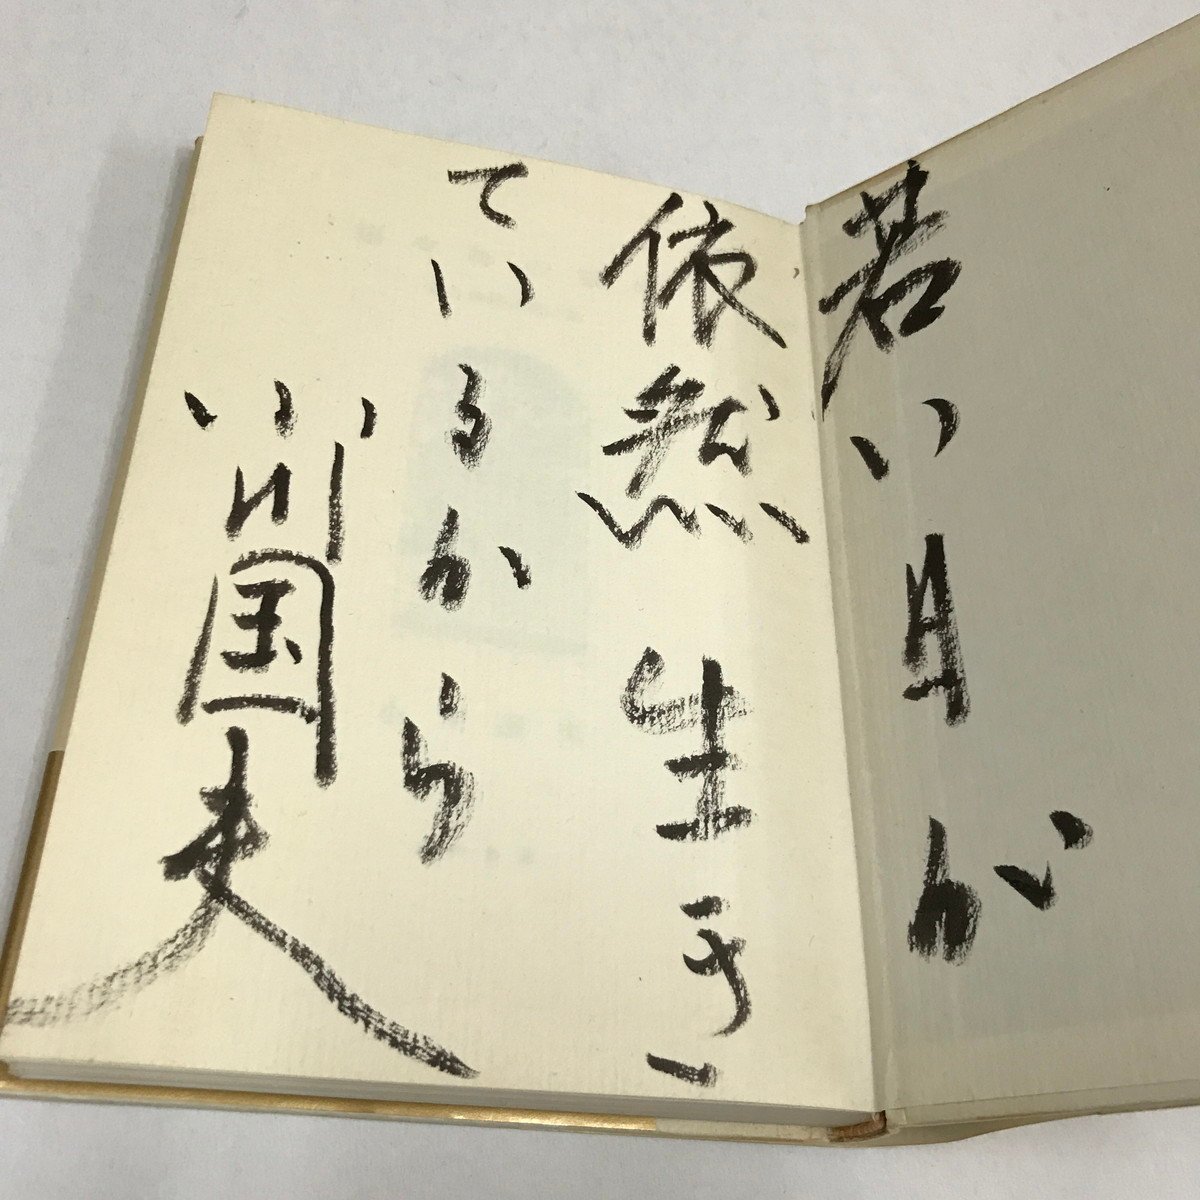 若い月が
依然生き
ているから
小川国夫